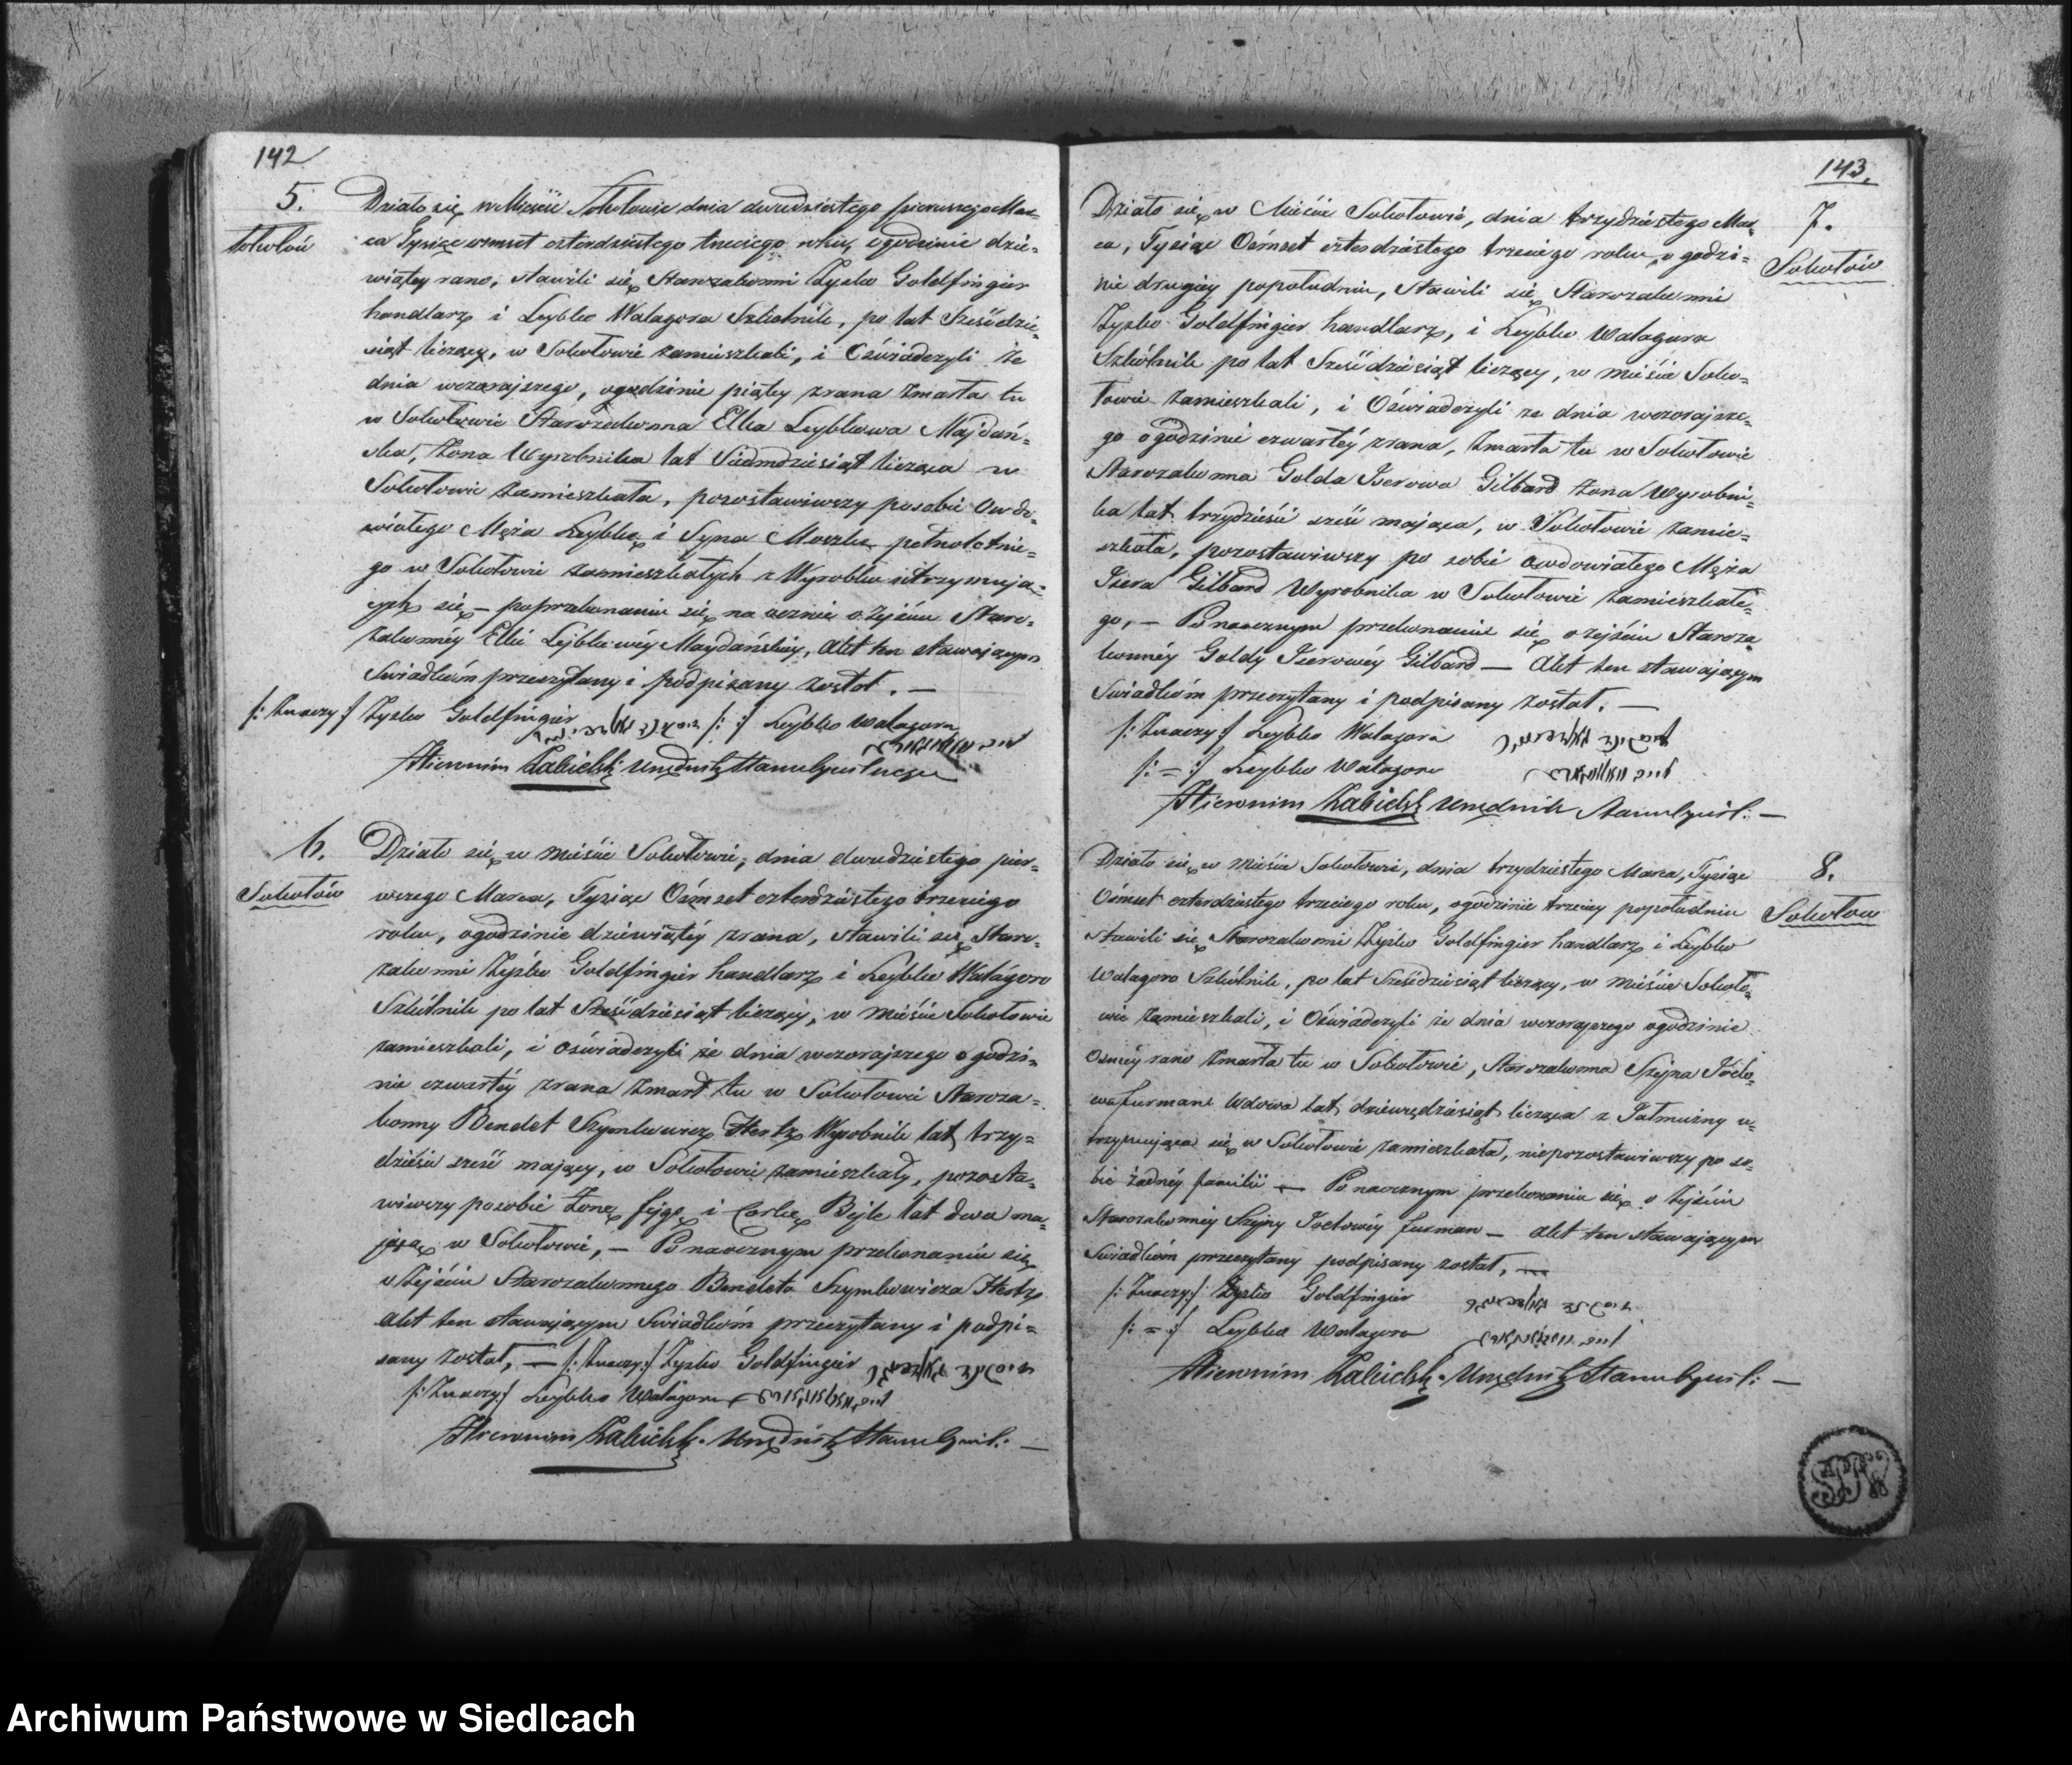 142
5.
Sokołów
Działo się w Mieście Sokołowie dnia dwudziestego pierwszego Mar=
ca Tysiąc ośmset czterdziestego trzeciego roku, o godzinie dzie=
wiątey rano, stawili się Starozakonni Zysko Goldfingier
handlarz i Leybko Watagora Szkolnik, po lat Sześćdzie=
siąt liczący, w Sokołowie zamieszkali, i Oświadczyli że
dnia wczorajszego, ogodzinie piątey zrana Zmarła tu
w Sokołowie Starozakonna Elka Leybkowa Majdań=
ska, Żona Wyrobnika lat Siedmdziesiąt licząca w
Sokołowie zamieszkała, pozostawiwszy posobie Owdo=
wiałego Męża Leybkę i Syna Moszka pełnoletnie=
go w Sokołowie zamieszkałych z Wyrobku utrzymują=
cych się – poprzekonaniu się na ocznie o Zejściu Staro=
zakonnéy Elki Lejbkowéy Maydańskiéy, Akt ten stawającym
Swiadkóm przeczytany i podpisany został. —
/: Znaczy :/ Zysko Goldfingier /: :/ Leybko Watagora
Hieronim Zabielski Urzędnik Stanu Cywilnego
6.
Sokołów
Działo się w Mieście Sokołowie, dnia dwudziestego pier=
wszego Marca, Tysiąc Ośmset czterdziestego trzeciego
roku, ogodzinie dziewiątéy zrana, stawili się Staro=
zakonni Zysko Goldfingier handlarz i Leybko Watagora
Szkólnik po lat Sześćdziesiąt liczący, w Mieście Sokołowie
zamieszkali, i oświadczyli że dnia wczorajszego o godzi=
nie czwartéy zrana Zmarł tu w Sokołowie Staroza=
konny Bendet Szymkowicz Hertz Wyrobnik lat trzy=
dzieści sześć mający, w Sokołowie zamieszkały, pozosta=
wiwszy posobie Żonę Fejgę i Corkę Bejle lat dwa ma=
jącą w Sokołowie, — Po naocznym przekonaniu się
o Zejściu Starozakonnego Bendeta Szymkowicza Hertz
akt ten stawającym Swiadkóm przeczytany i podpi=
sany został, — /: Znaczy :/ Zysko Goldfingier
/: Znaczy :/ Leybko Watagora
Hieronim Zabielski Urzędnik Stanu Cywil: —
143.
7.
Sokołów
Działo się w Mieście Sokołowie, dnia trzydziestego Mar=
ca, Tysiąc Ośmset czterdziestego trzeciego roku, o godzi=
nie drugiéy popołudniu, Stawili się Starozakonni
Zysko Goldfingier handlarz, i Leybko Watagura
Szkólnik po lat Sześćdziesiąt liczący, w mieście Soko=
łowie zamieszkali, i Oświadczyli ze dnia wczorajsze=
go o godzinie czwartéy zrana, Zmarła tu w Sokołowie
Starozakonna Golda Iserowa Gilbard Żona Wyrobni=
ka lat trzydzieści sześć mająca, w Sokołowie zamie=
szkała, pozostawiwszy po sobie Owdowiałego Męża
Isera Gilbard Wyrobnika w Sokołowie zamieszkałe=
go, — Po naocznym przekonaniu się o zejściu Staroza=
konnéy Goldy Iserowéy Gilbard — Akt ten stawającym
Swiadkóm przeczytany i podpisany został. —
/: Znaczy :/ Leybko Watagora
/: = :/ Leybko Watagora
Hieronim Zabielski Urzędnik Stanu Cywil: —
8.
Sokołow
Działo się w Mieście Sokołowie, dnia trzydziestego Marca, Tysiąc
Ośmset czterdziestego trzeciego roku, ogodzinie trzeciey popołudniu
stawili się Starozakonni Zysko Goldfingier handlarz i Leybko
Watagora Szkólnik, po lat Sześćdziesiąt liczący, w Mieście Sokoło=
wie zamieszkali, i Oświadczyli że dnia wczorajszego ogodzinie
Osméy rano Zmarła tu w Sokołowie, Starozakonna Szejna Joeło=
wa Furman Wdowa lat dziewięćdziesiąt licząca z Jałmużny u=
trzymująca się w Sokołowie zamieszkała, niepozostawiwszy po so=
bie żadnéy familii — Po naocznym przekonaniu się o Zejściu
Starozakonnéy Szejny Joelowéy Furman — Akt ten stawającym
Swiadkóm przeczytany podpisany został, —
/: Znaczy :/ Zysko Goldfingier
/: = :/ Leybko Watagora
Hieronim Zabielski Urzędnik Stanu Cywil: —
Archiwum Państwowe w Siedlcach